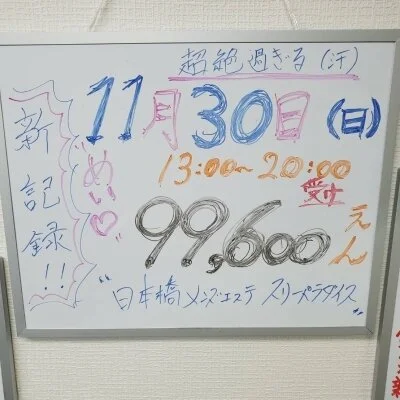 超絶過ぎる(汗)
11月30日(日)
新記録!!
めい♡
13:00~20:00
受付
99,600えん
"日本橋メンズエステ スリープラダイス"